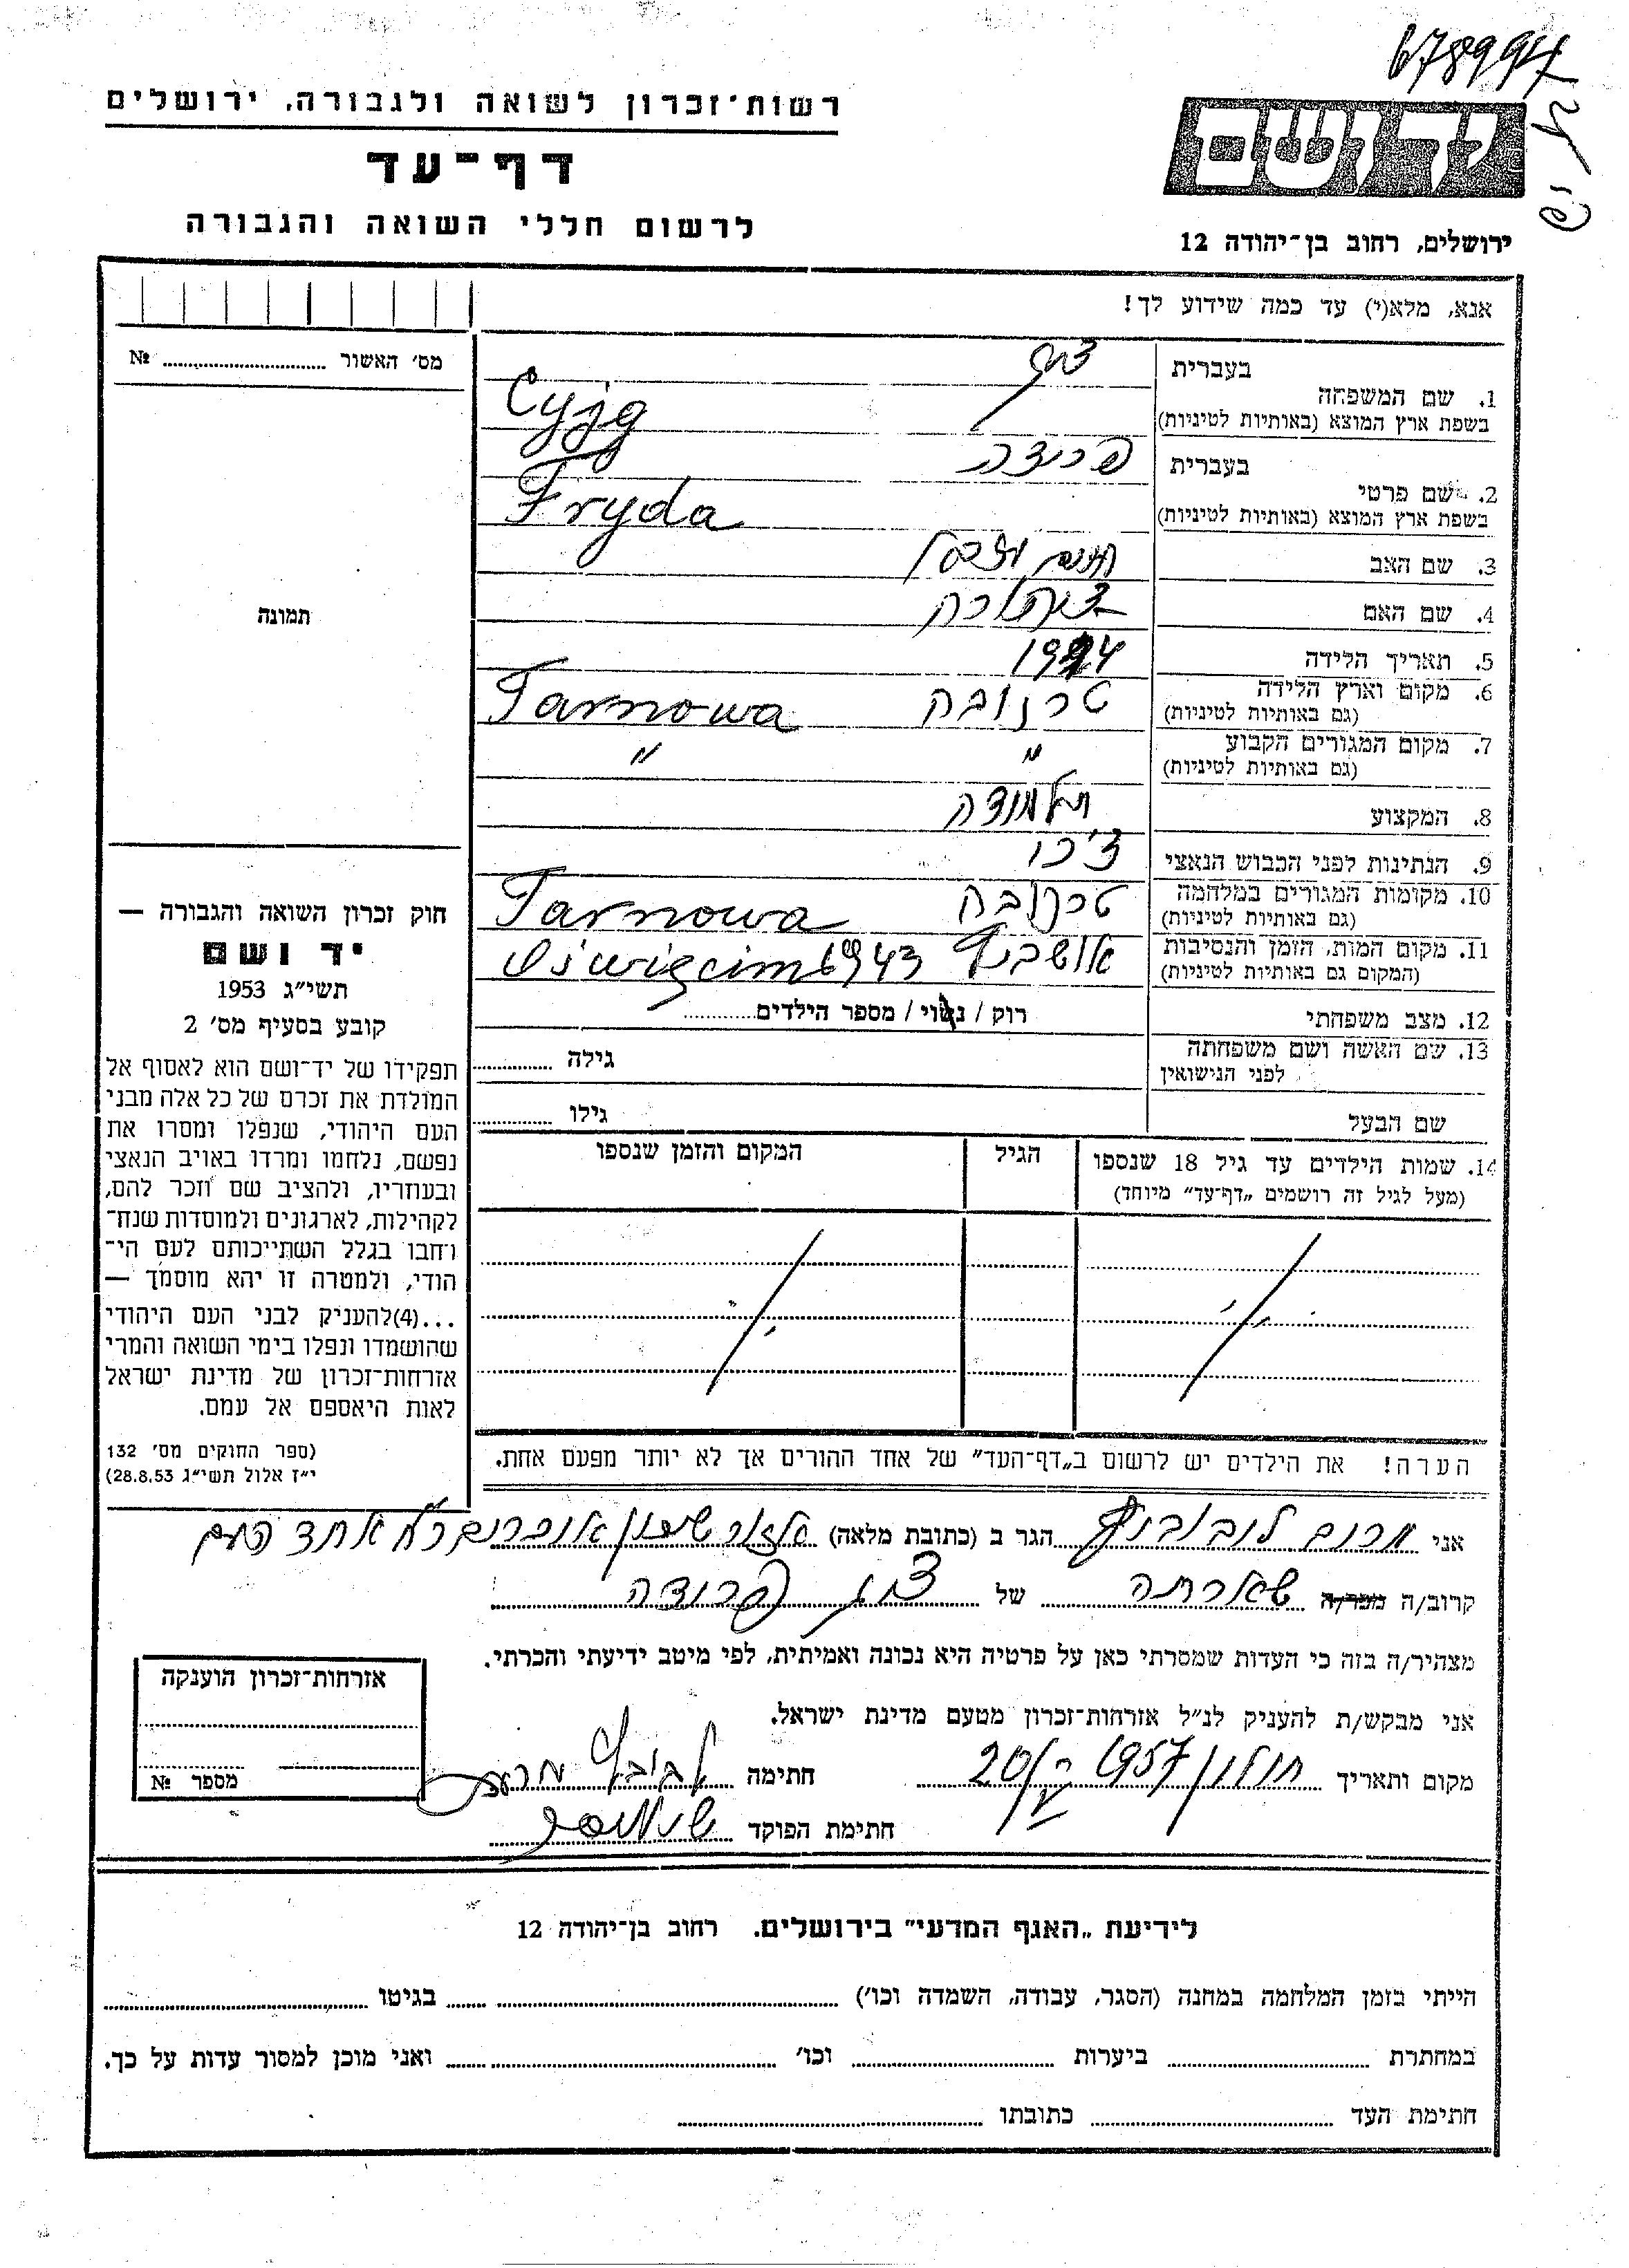 678994
יד ושם
ירושלים, רחוב בן־יהודה 12
רשות־זכרון לשואה ולגבורה, ירושלים
דף־עד
לרשום חללי השואה והגבורה
אנא, מלא(י) עד כמה שידוע לך!
מס׳ האשור № ....................
תמונה
בעברית
1. שם המשפחה
בשפת ארץ המוצא (באותיות לטיניות) Cyjg
בעברית פרידה
2. שם פרטי
בשפת ארץ המוצא (באותיות לטיניות) Fryda
3. שם האב
4. שם האם
5. תאריך הלידה 1924
6. מקום וארץ הלידה טרנובה Tarnowa
(גם באותיות לטיניות)
7. מקום המגורים הקבוע " "
(גם באותיות לטיניות)
8. המקצוע תלמידה
9. הנתינות לפני הכבוש הנאצי
10. מקומות המגורים במלחמה טרנובה Tarnowa
(גם באותיות לטיניות)
11. מקום המות, הזמן והנסיבות אושביץ 1943 Oświęcim
(המקום גם באותיות לטיניות)
12. מצב משפחתי רוק / נשוי / מספר הילדים............
13. שם האשה ושם משפחתה גילה ............
לפני הנישואין
שם הבעל גילו ............
14. שמות הילדים עד גיל 18 שנספו הגיל המקום והזמן שנספו
(מעל לגיל זה רושמים „דף־עד” מיוחד)
הערה! את הילדים יש לרשום ב„דף־העד” של אחד ההורים אך לא יותר מפעם אחת.
חוק זכרון השואה והגבורה —
יד ושם
תשי״ג 1953
קובע בסעיף מס׳ 2
תפקידו של יד־ושם הוא לאסוף אל
המולדת את זכרם של כל אלה מבני
העם היהודי, שנפלו ומסרו את
נפשם, נלחמו ומרדו באויב הנאצי
ובעוזריו, ולהציב שם וזכר להם,
לקהילות, לארגונים ולמוסדות שנח־
רחבו בגלל השתייכותם לעם הי־
הודי, ולמטרה זו יהא מוסמך —
...(4) להעניק לבני העם היהודי
שהושמדו ונפלו בימי השואה והמרי
אזרחות־זכרון של מדינת ישראל
לאות היאספם אל עמם.
(ספר החוקים מס׳ 132
י״ז אלול תשי״ג 28.8.53)
אני מרים ליבוביץ הגר ב (כתובת מלאה) אחד העם
קרוב/ה מכר/ה של פרידה
מצהיר/ה בזה כי העדות שמסרתי כאן על פרטיה היא נכונה ואמיתית, לפי מיטב ידיעתי והכרתי.
אני מבקש/ת להעניק לנ״ל אזרחות־זכרון מטעם מדינת ישראל.
מקום ותאריך חולון 1957 חתימה
חתימת הפוקד
אזרחות־זכרון הוענקה
מספר №
לידיעת „האגף המדעי” בירושלים. רחוב בן־יהודה 12
הייתי בזמן המלחמה במחנה (הסגר, עבודה, השמדה וכו׳) ............ בגיטו ............
במחתרת ............ ביערות ............ וכו׳ ............ ואני מוכן למסור עדות על כך.
חתימת העד ............ כתובתו ............